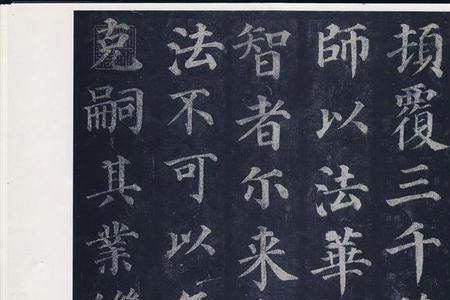 頂覆三千
師以法華
智者尔来
法不可以
克嗣其業